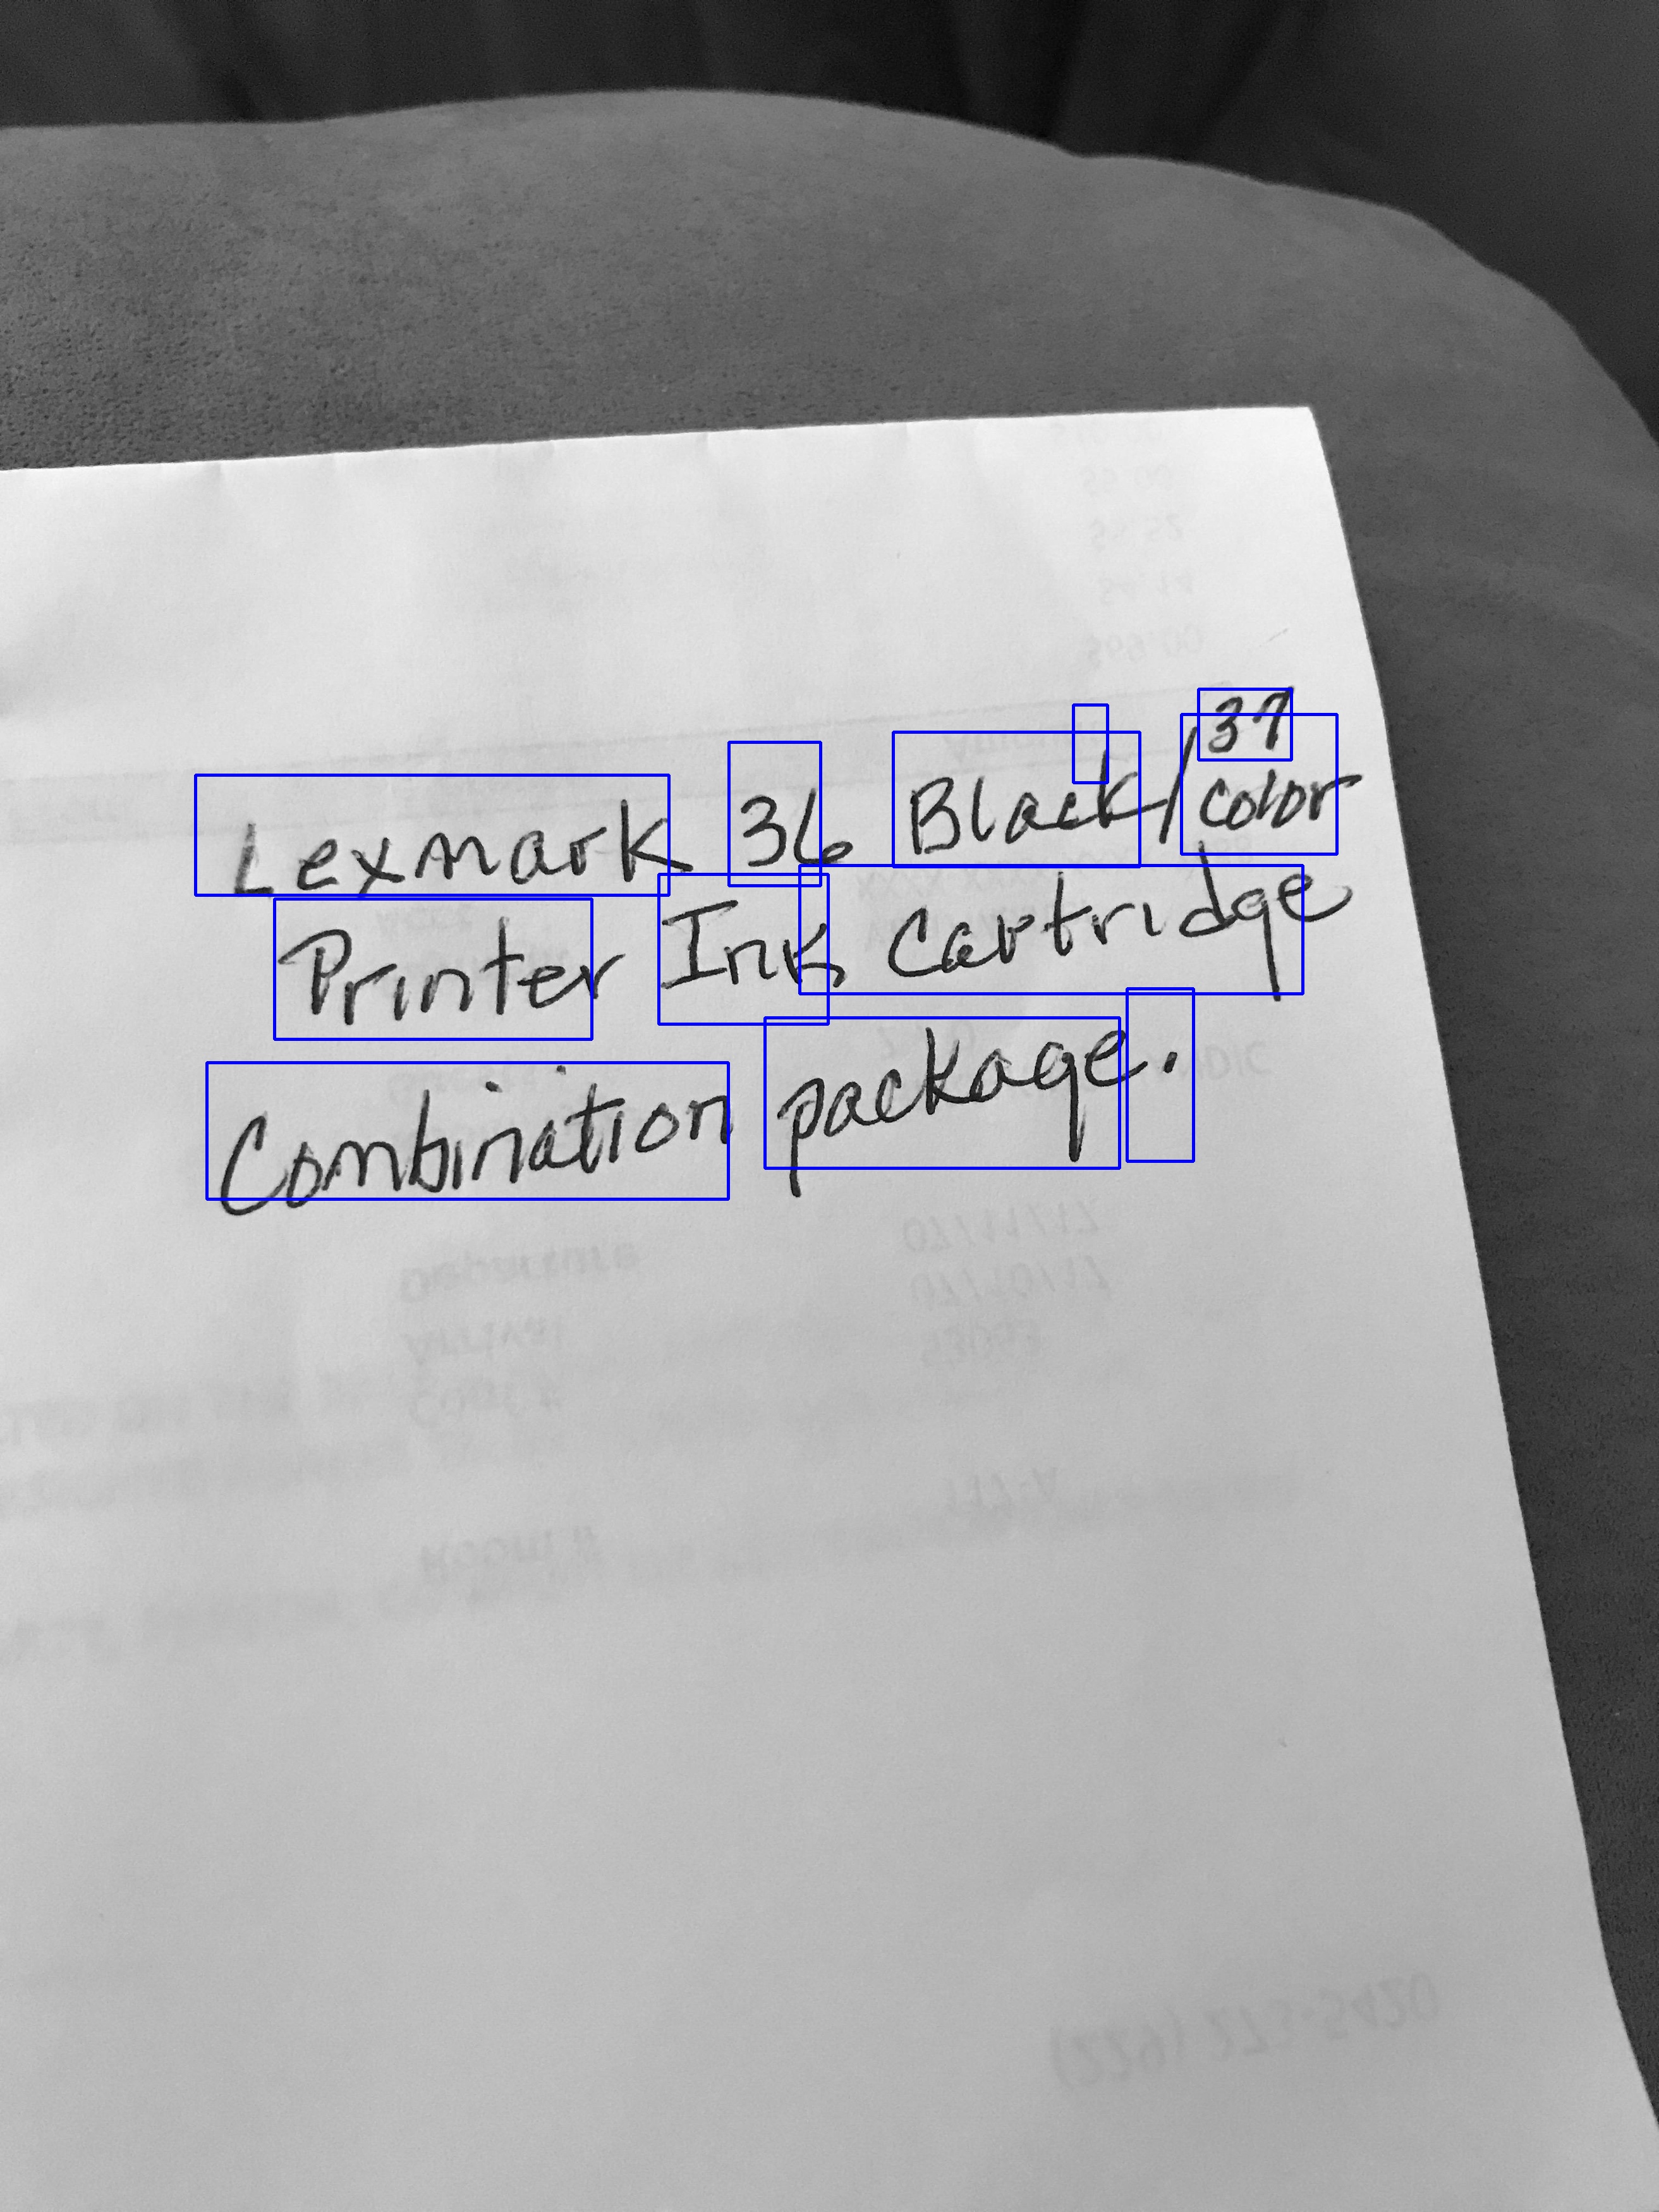 Lexmark 36 Black/ 37 color
Printer Ink Cartridge
Combination package.